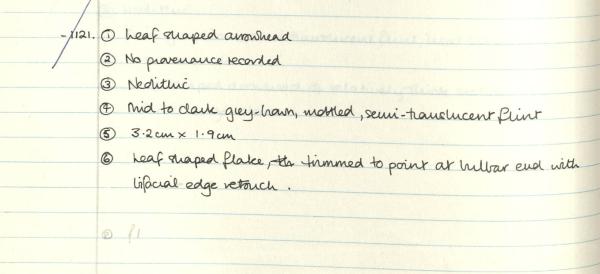 1121. ① Leaf shaped arrowhead
② No provenance recorded
③ Neolithic
④ Mid to dark grey-brown, mottled, semi-translucent flint
⑤ 3.2cm x 1.9cm
⑥ Leaf shaped flake, trimmed to point at bulbar end with
bifacial edge retouch.